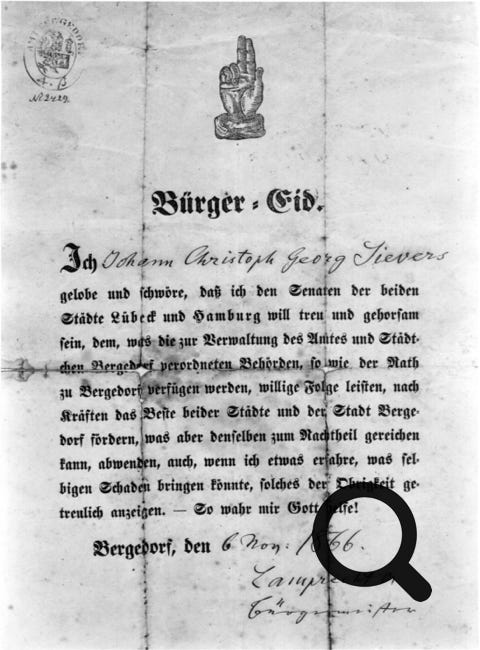 AMT BERGEDORF
No 2429
Bürger-Eid.
Ich Johann Christoph Georg Sievers
gelobe und schwöre, daß ich den Senaten der beiden
Städte Lübeck und Hamburg will treu und gehorsam
sein, dem, was die zur Verwaltung des Amtes und Städt-
chen Bergedorf verordneten Behörden, so wie der Rath
zu Bergedorf verfügen werden, willige Folge leisten, nach
Kräften das Beste beider Städte und der Stadt Berge-
dorf fördern, was aber denselben zum Nachtheil gereichen
kann, abwenden, auch, wenn ich etwas erfahre, was sel-
bigen Schaden bringen könnte, solches der Obrigkeit ge-
treulich anzeigen. — So wahr mir Gott helfe!
Bergedorf, den 6 Nov: 1866.
Bürgermeister